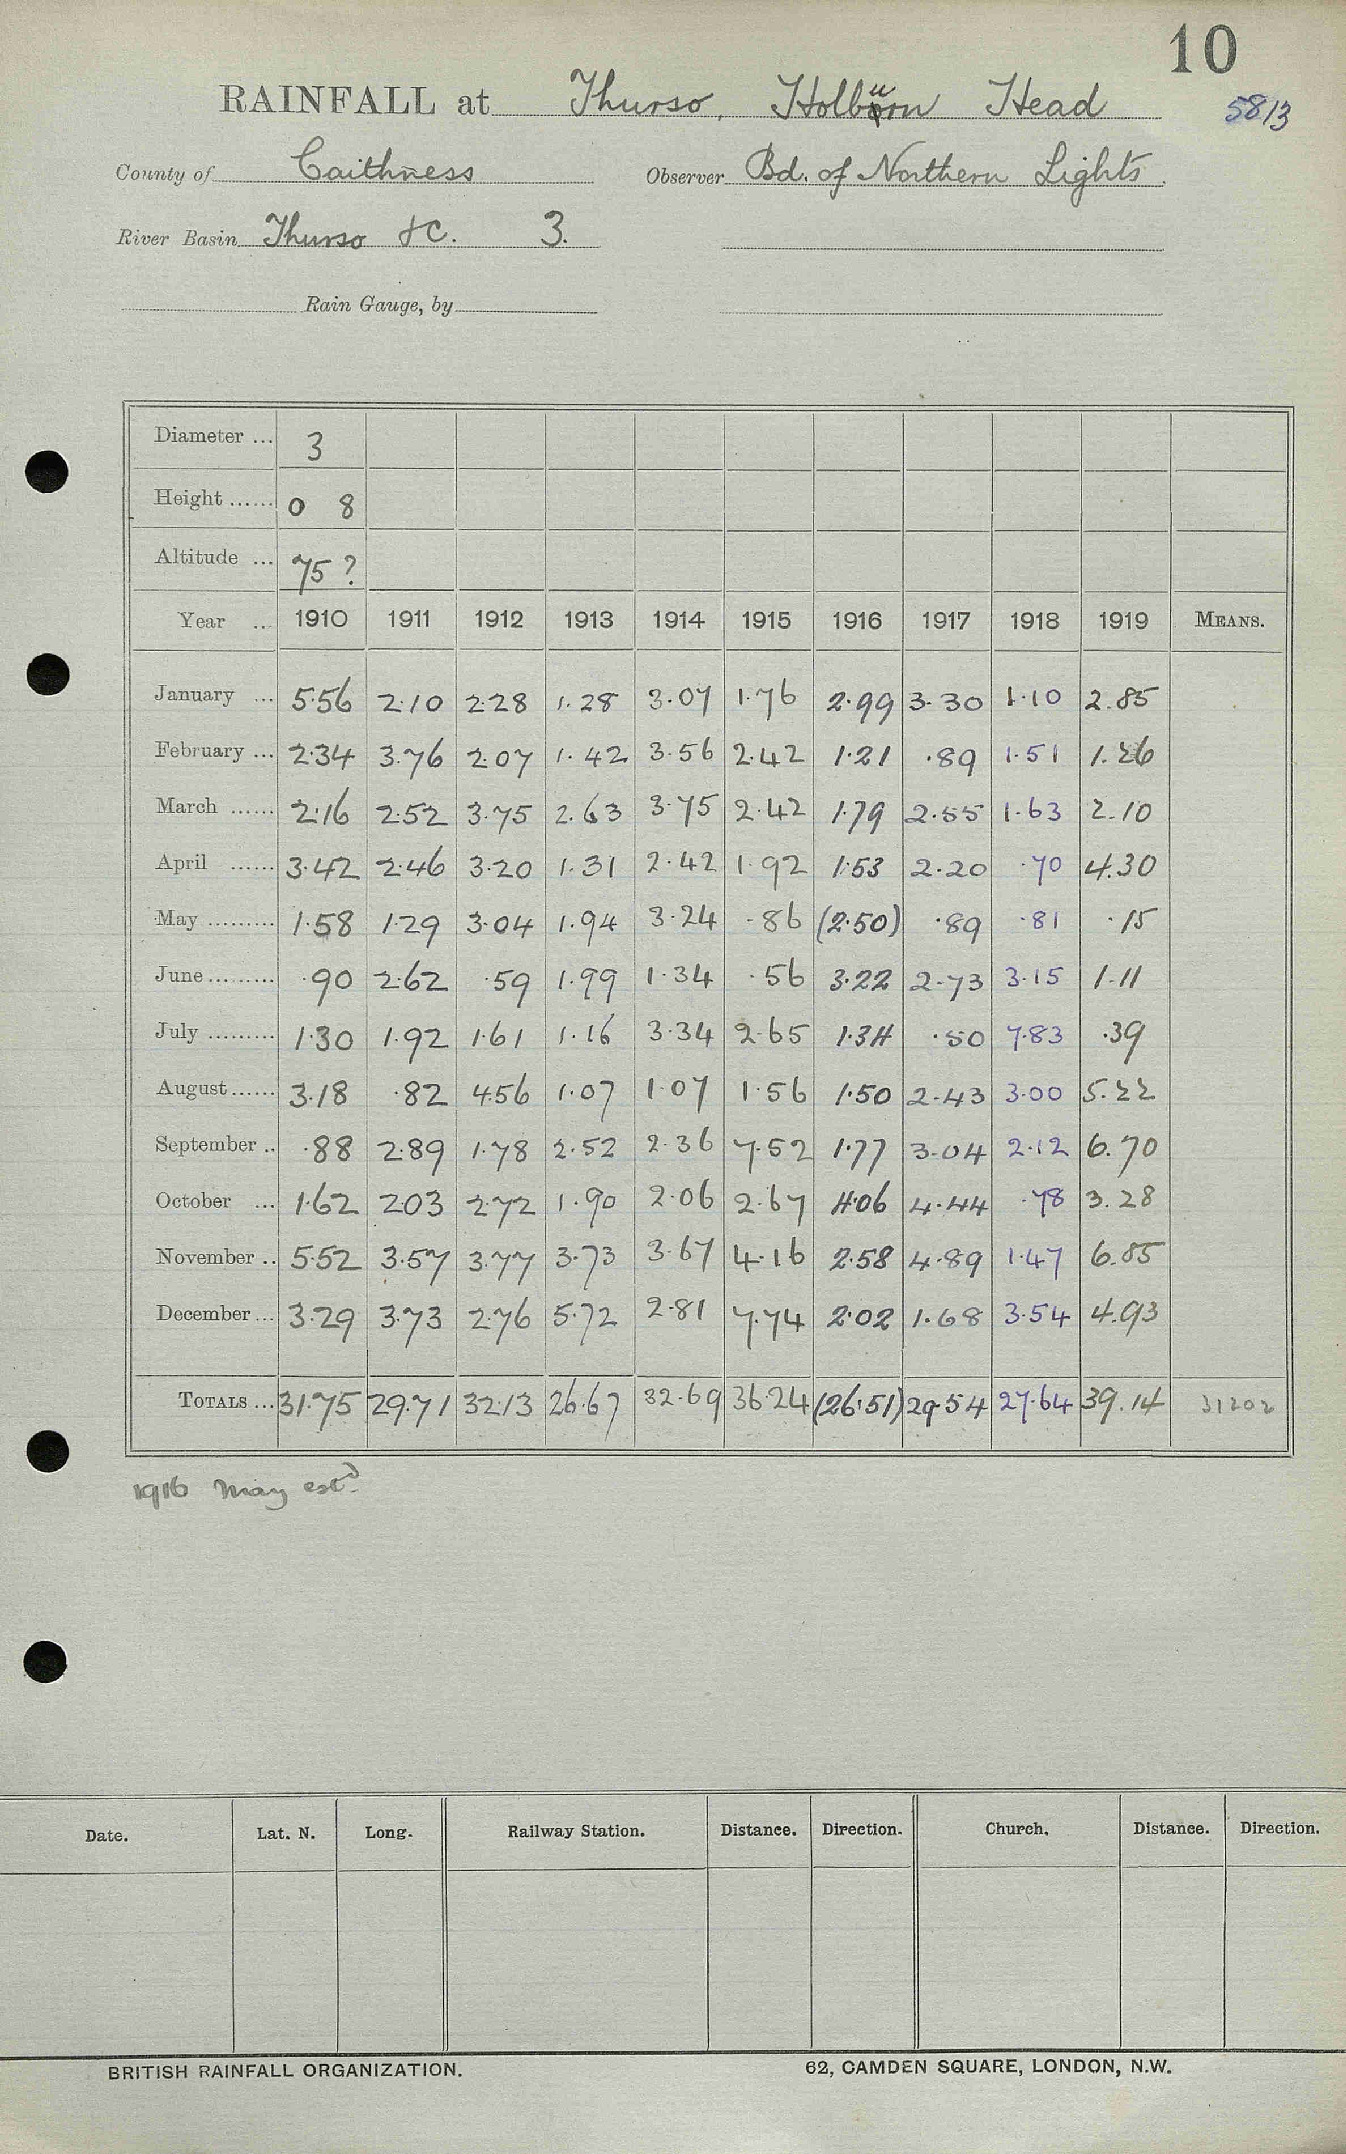 10
RAINFALL at Thurso, Holburn Head 5813
County of Caithness Observer Bd. of Northern Lights.
River Basin Thurso &C. 3.
Rain Gauge, by
Diameter ... 3
Height ...... 0 8
Altitude ... 75 ?
Year ... 1910 1911 1912 1913 1914 1915 1916 1917 1918 1919 MEANS.
January ... 5.56 2.10 2.28 1.28 3.07 1.76 2.99 3.30 1.10 2.85
February ... 2.34 3.76 2.07 1.42 3.56 2.42 1.21 .89 1.51 1.26
March ...... 2.16 2.52 3.75 2.63 3.75 2.42 1.79 2.55 1.63 2.10
April ...... 3.42 2.46 3.20 1.31 2.42 1.92 1.53 2.20 .70 4.30
May ......... 1.58 1.29 3.04 1.94 3.24 .86 (2.50) .89 .81 .15
June ......... .90 2.62 .59 1.99 1.34 .56 3.22 2.73 3.15 1.11
July ......... 1.30 1.92 1.61 1.16 3.34 2.65 1.34 .50 7.83 .39
August ...... 3.18 .82 4.56 1.07 1.07 1.56 1.50 2.43 3.00 5.22
September .. .88 2.89 1.78 2.52 2.36 7.52 1.77 3.04 2.12 6.70
October ... 1.62 2.03 2.72 1.90 2.06 2.67 4.06 4.44 .78 3.28
November .. 5.52 3.57 3.77 3.73 3.67 4.16 2.58 4.89 1.47 6.85
December ... 3.29 3.73 2.76 5.72 2.81 7.74 2.02 1.68 3.54 4.93
TOTALS ... 31.75 29.71 32.13 26.67 32.69 36.24 (26.51) 29.54 27.64 39.14 31202
1916 May estd.
Date. Lat. N. Long. Railway Station. Distance. Direction. Church. Distance. Direction.
BRITISH RAINFALL ORGANIZATION. 62, CAMDEN SQUARE, LONDON, N.W.